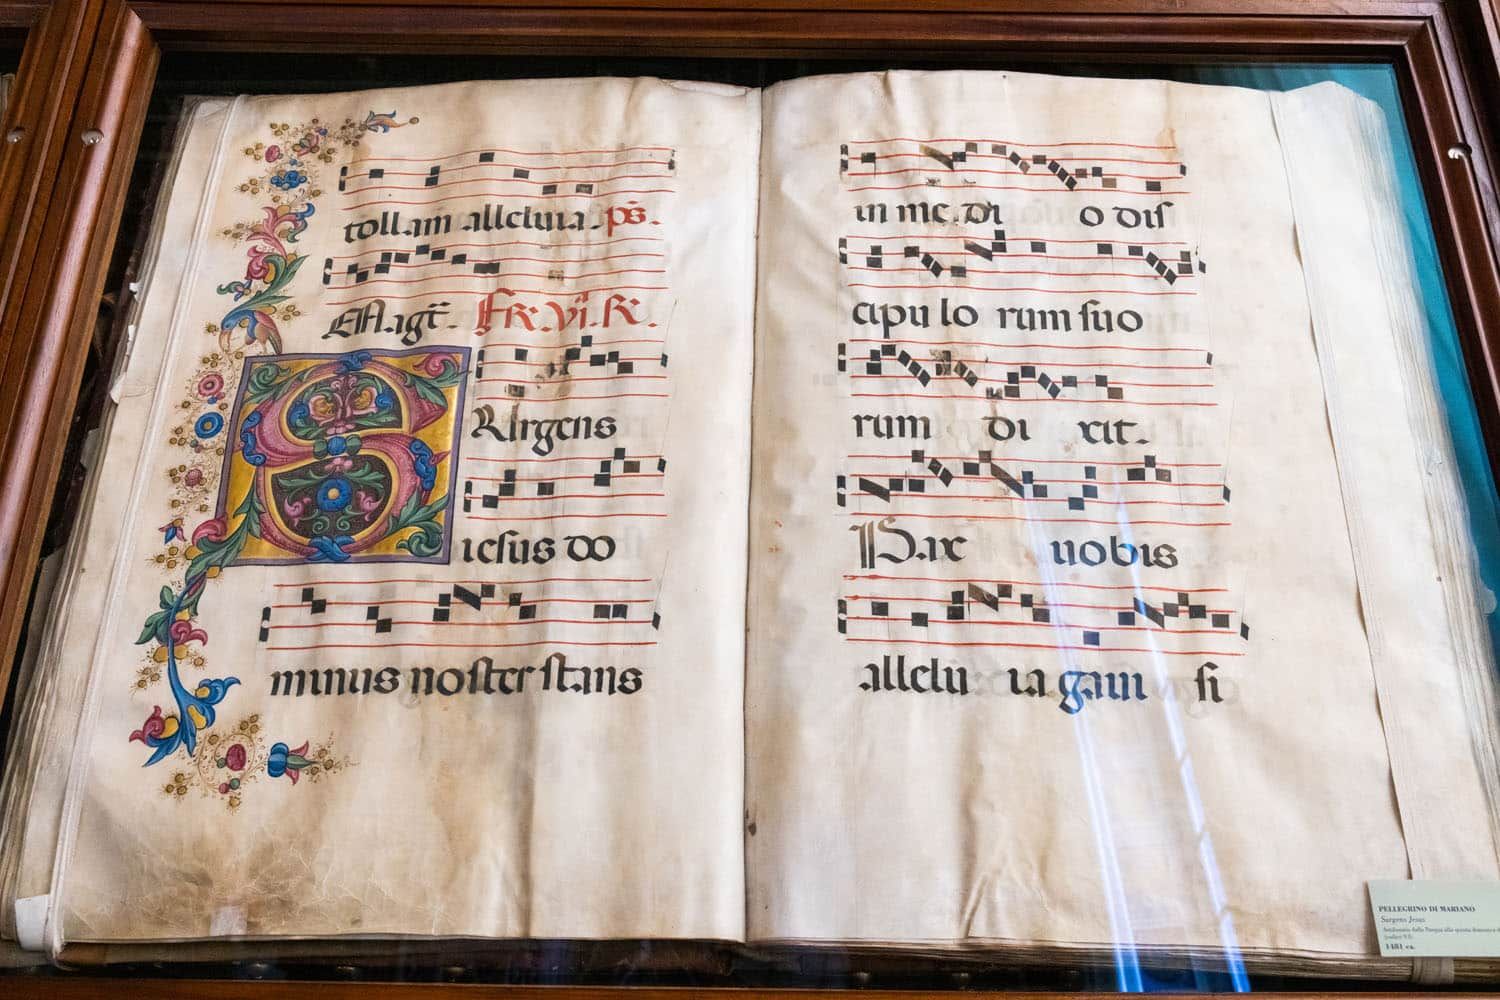 tollam alleluia. ps.
Magt. Fr. vi. R.
SUrgens
iesus do
minus noster stans
in me di o dis
cipu lo rum suo
rum di xit.
Pax uobis
allelu ia gaui si
PELLEGRINO DI MARIANO
Surgens Jesus
Antifonario dalla Pasqua alla quinta domenica
1481 ca.